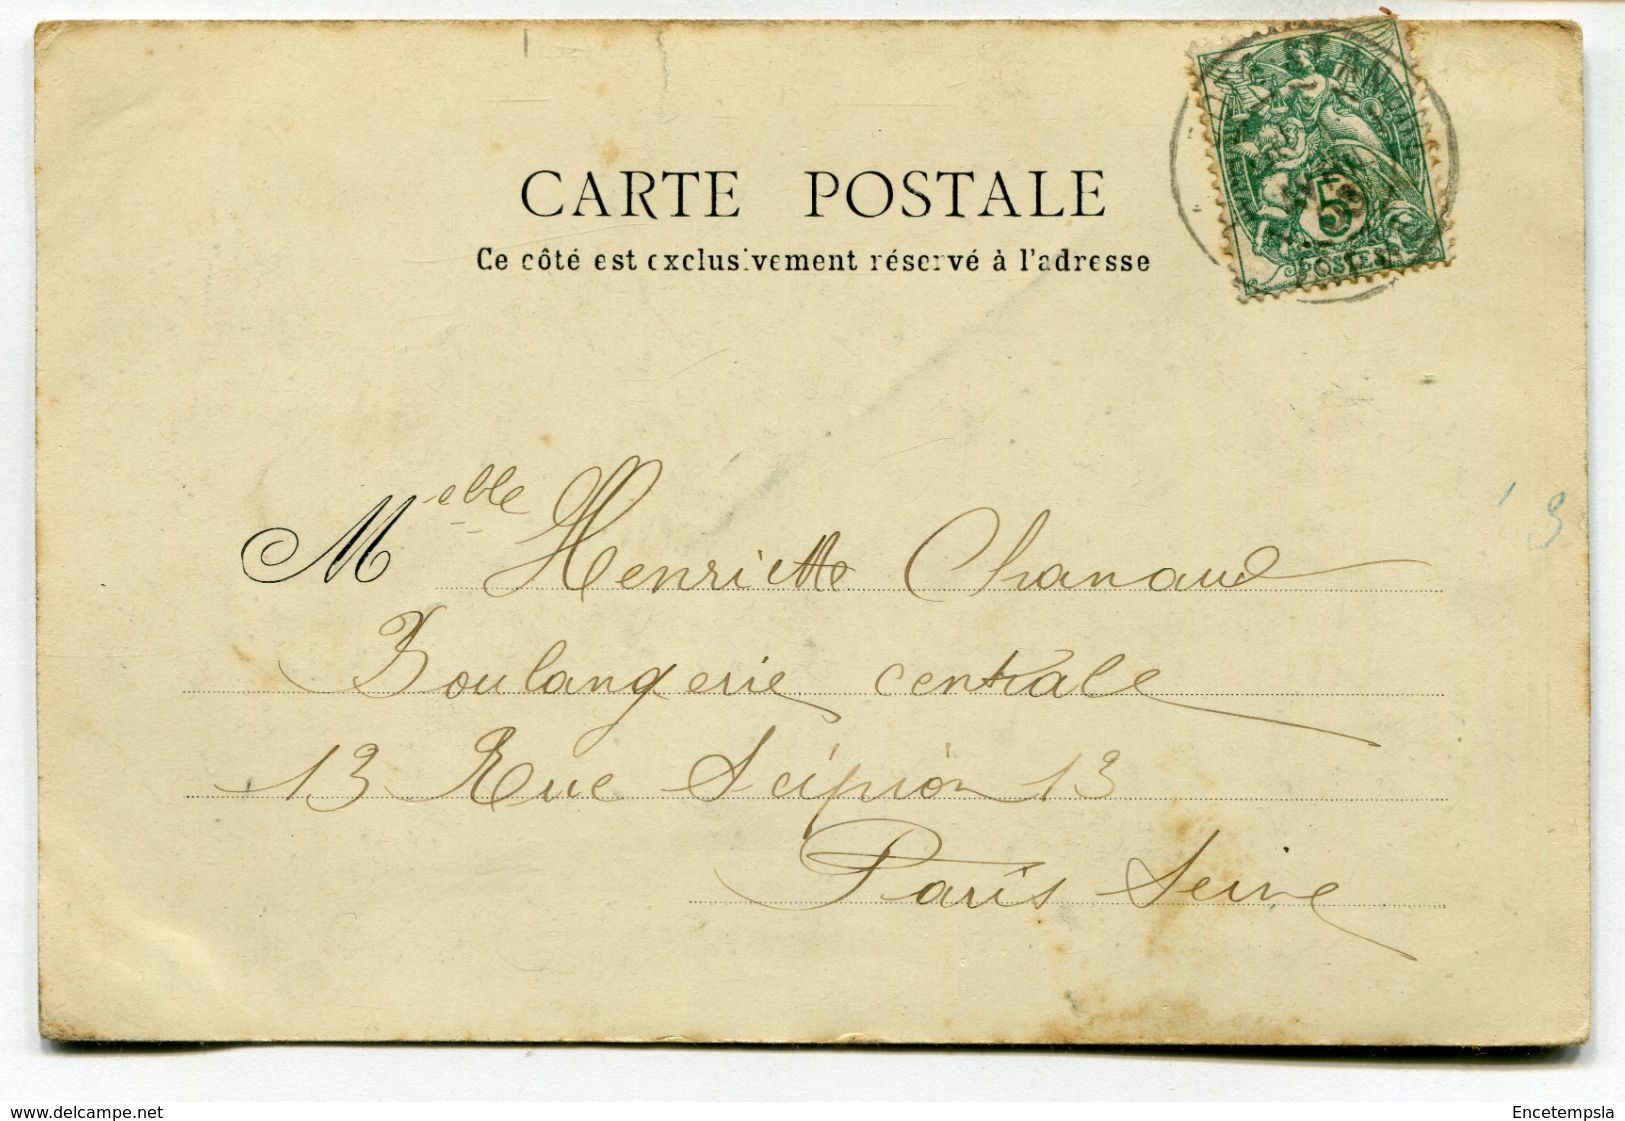 CARTE POSTALE
Ce côté est exclusivement réservé à l'adresse
5
POSTES
Melle Henriette Chanaud
Boulangerie centrale
13 Rue Scipion 13
Paris Seine
www.delcampe.net
Encetempsla